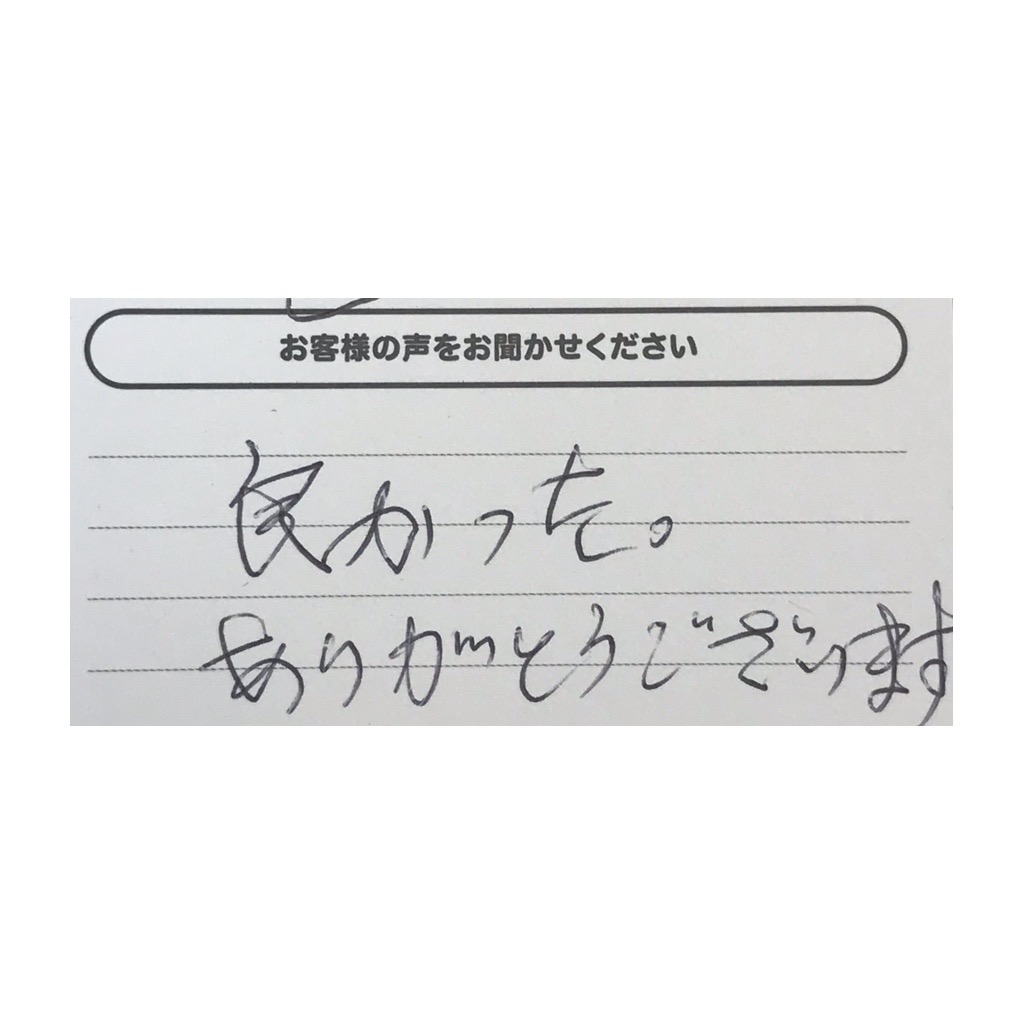 お客様の声をお聞かせください
良かった。
ありがとうございます